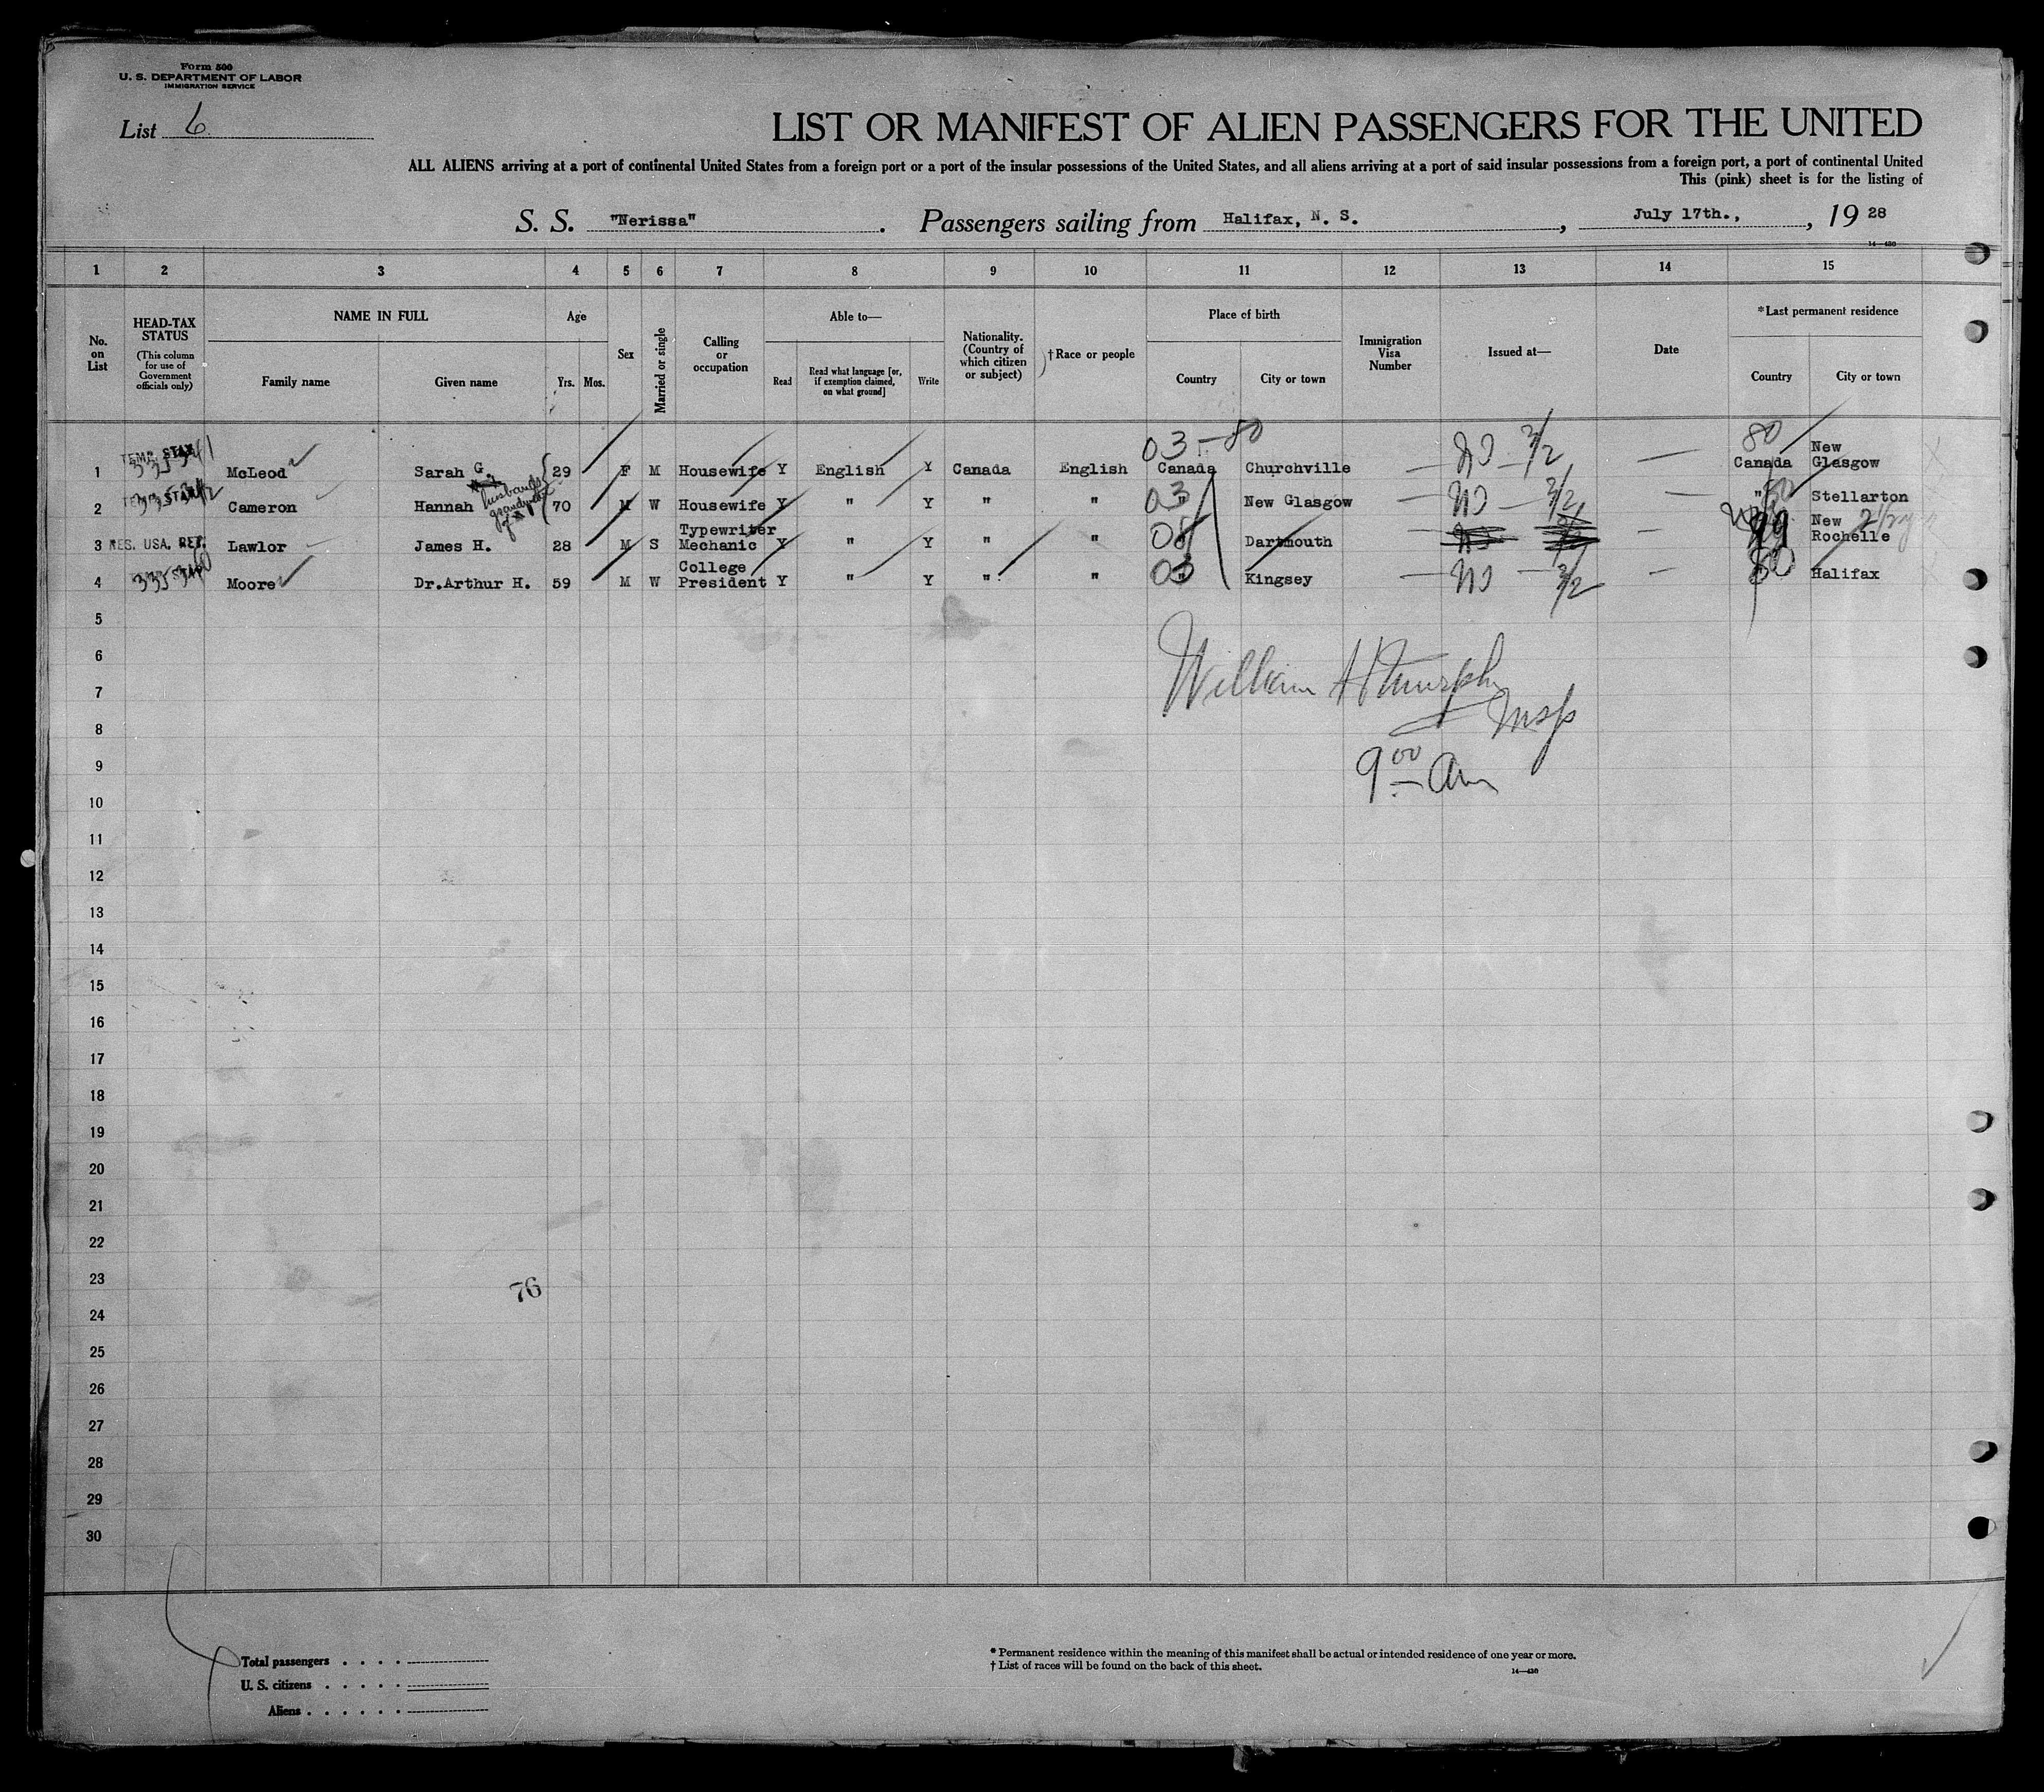 Form 500
U. S. DEPARTMENT OF LABOR
IMMIGRATION SERVICE
List 6
LIST OR MANIFEST OF ALIEN PASSENGERS FOR THE UNITED
ALL ALIENS arriving at a port of continental United States from a foreign port or a port of the insular possessions of the United States, and all aliens arriving at a port of said insular possessions from a foreign port, a port of continental United
This (pink) sheet is for the listing of
S. S. "Nerissa". Passengers sailing from Halifax, N. S., July 17th., , 19 28
14—430
1 2 3 4 5 6 7 8 9 10 11 12 13 14 15
No. on List
HEAD-TAX STATUS
(This column for use of Government officials only)
NAME IN FULL
Family name Given name
Age
Yrs. Mos.
Sex
Married or single
Calling or occupation
Able to—
Read
Read what language [or, if exemption claimed, on what ground]
Write
Nationality. (Country of which citizen or subject)
†Race or people
Place of birth
Country City or town
Immigration Visa Number
Issued at—
Date
*Last permanent residence
Country City or town
03-80 80
1 McLeod Sarah G. 29 F M Housewife Y English Y Canada English Canada Churchville NO - 3/2 Canada New Glasgow
husband's grandmother of
2 Cameron Hannah 70 M W Housewife Y " Y " " 03 New Glasgow NO - 3/2 " Stellarton
3 RES. USA. RET. Lawlor James H. 28 M S Typewriter Mechanic Y " Y " " Dartmouth 99 New Rochelle
4 Moore Dr.Arthur H. 59 M W College President Y " Y " " 03 Kingsey NO - 3/2 Halifax
5
6
William H Murphy
7
Insp
8
9
9 00 Am
10
11
12
13
14
15
16
17
18
19
20
21
22
23
76
24
25
26
27
28
29
30
Total passengers . . . .
U. S. citizens . . . . .
Aliens . . . . . .
* Permanent residence within the meaning of this manifest shall be actual or intended residence of one year or more.
† List of races will be found on the back of this sheet.
14—430